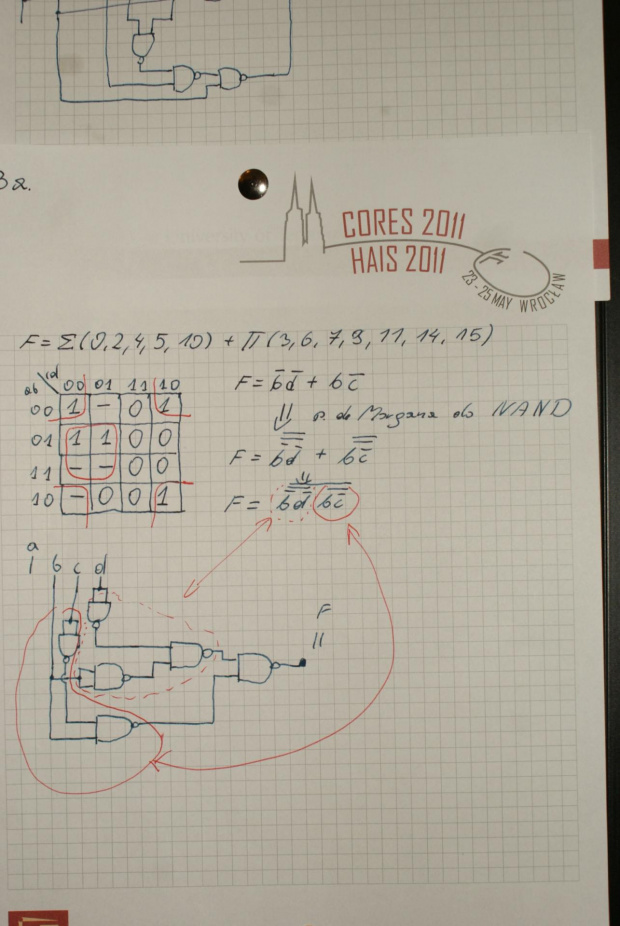 3a.
CORES 2011
HAIS 2011
23 - 25 MAY WROCŁAW
F = Σ(0,2,4,5,10) + Π(3,6,7,9,11,14,15)
ab \ cd 00 01 11 10
00 1 - 0 1
01 1 1 0 0
11 - - 0 0
10 - 0 0 1
F = b̅d̅ + bc̅
⇓ p. de Morgana do NAND
F = b̅d̅ + bc̅
F = b̅d̅ bc̅
a
b c d
F